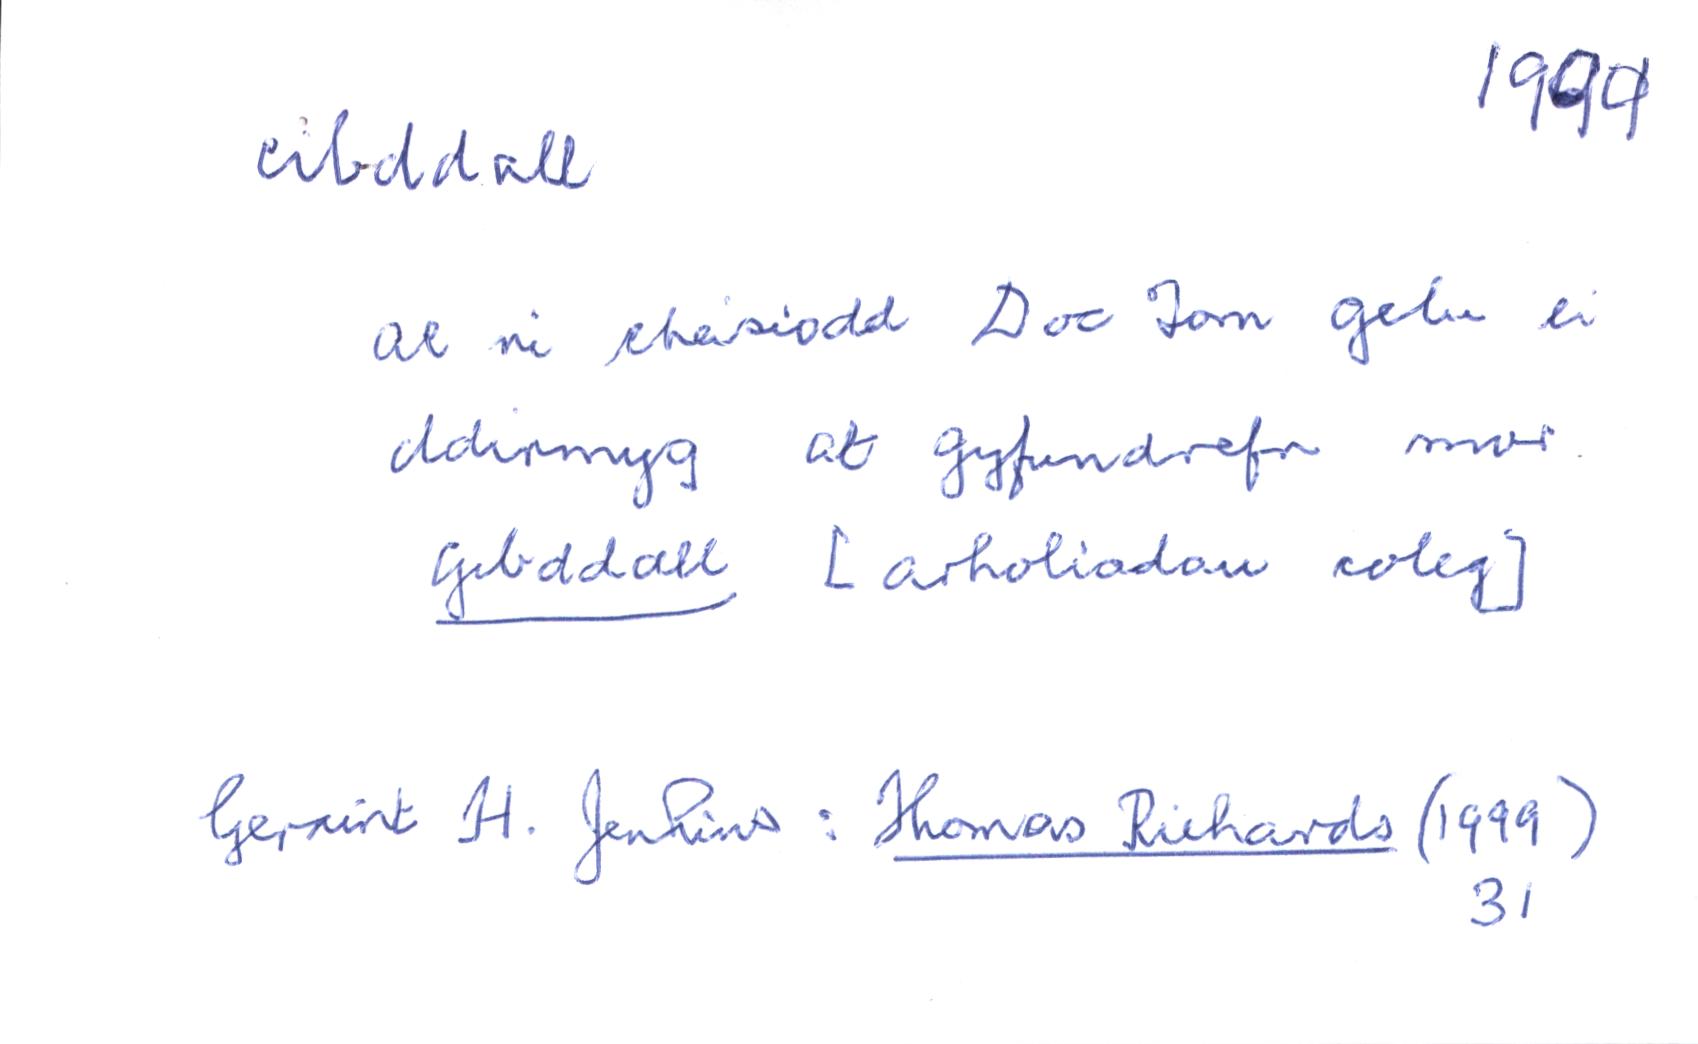 1999
cibddall
ac ni cheisiodd Doc Tom gelu ei
ddirmyg at gyfundrefn mor
gibddall [arholiadau coleg]
Geraint H. Jenkins : Thomas Richards (1999)
31